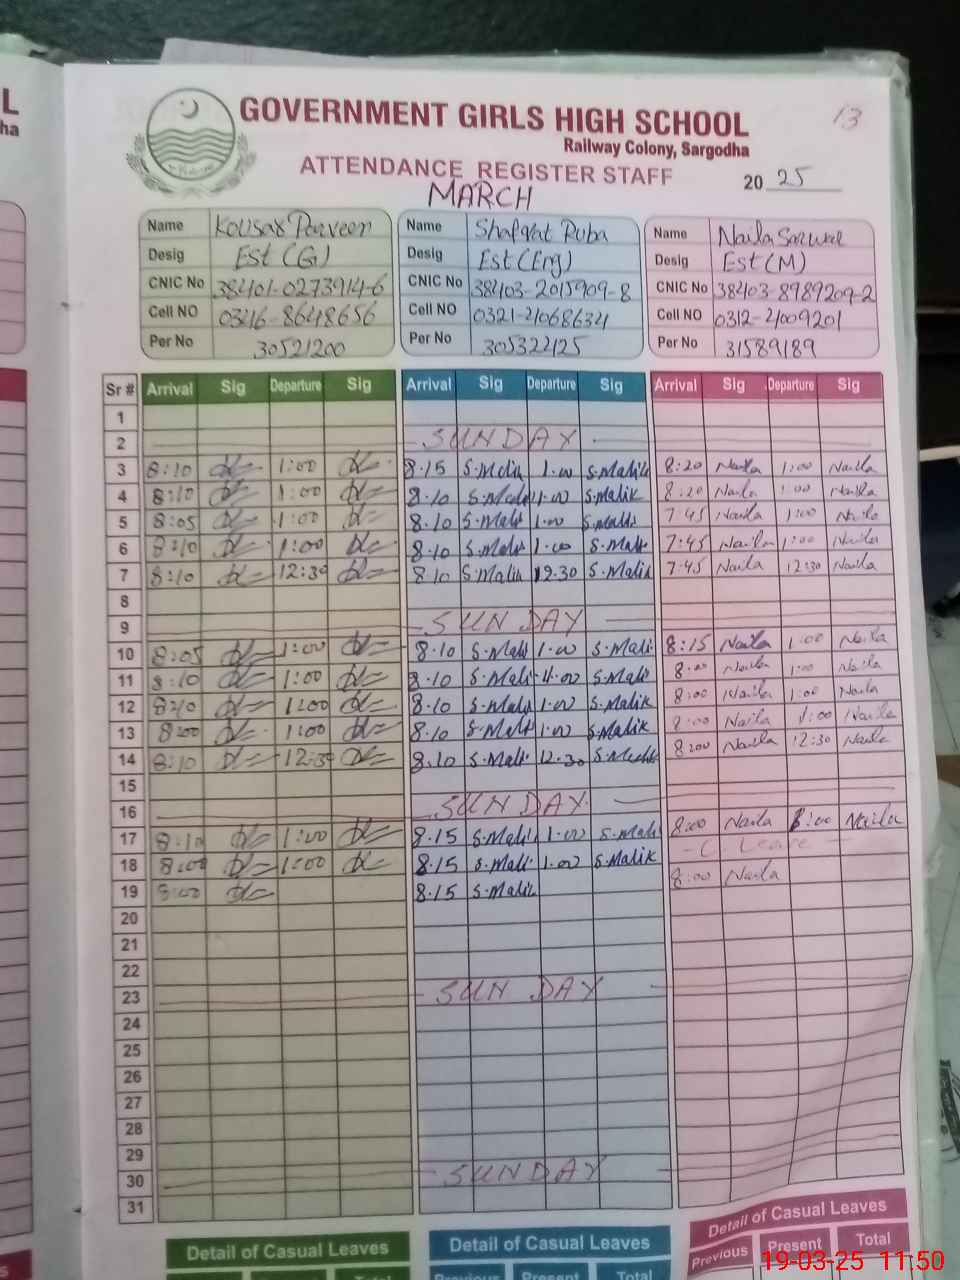 L
ha
GOVERNMENT GIRLS HIGH SCHOOL
13
Railway Colony, Sargodha
ATTENDANCE REGISTER STAFF
20 25
MARCH
Name Kousar Parveen Name Shafqat Ruba Name Naila Sarwar
Desig Est (G) Desig Est (Eng) Desig Est (M)
CNIC No 38401-0273914-6 CNIC No 38403-2015909-8 CNIC No 38403-8989209-2
Cell NO 0346-8648656 Cell NO 0321-4068634 Cell NO 0312-4009201
Per No 30521200 Per No 30532425 Per No 31589189
Sr # Arrival Sig Departure Sig Arrival Sig Departure Sig Arrival Sig Departure Sig
1
2 SUNDAY
3 8:10 1:00 8.15 S.Malik 1.00 S.Malik 8:20 Naila 1:00 Naila
4 8:10 1:00 8.10 S.Malik 1.00 S.Malik 8:20 Naila 1:00 Naila
5 8:05 1:00 8.10 S.Malik 1.00 S.Malik 7:45 Naila 1:00 Naila
6 8:10 1:00 8.10 S.Malik 1.00 S.Malik 7:45 Naila 1:00 Naila
7 8:10 12:30 8.10 S.Malik 12.30 S.Malik 7:45 Naila 12:30 Naila
8
9 SUNDAY
10 8:05 1:00 8.10 S.Malik 1.00 S.Malik 8:15 Naila 1:00 Naila
11 8:10 1:00 8.10 S.Malik 1.00 S.Malik 8:00 Naila 1:00 Naila
12 8:10 1:00 8.10 S.Malik 1.00 S.Malik 8:00 Naila 1:00 Naila
13 8:00 1:00 8.10 S.Malik 1.00 S.Malik 8:00 Naila 1:00 Naila
14 8:10 12:30 8.10 S.Malik 12.30 S.Malik 8:00 Naila 12:30 Naila
15
16 SUNDAY
17 8:10 1:00 8.15 S.Malik 1.00 S.Malik 8:00 Naila 1:00 Naila
18 8:00 1:00 8.15 S.Malik 1.00 S.Malik - C. Leave -
19 8:00 8.15 S.Malik 8:00 Naila
20
21
22
23 SUNDAY
24
25
26
27
28
29
30 SUNDAY
31
Detail of Casual Leaves Detail of Casual Leaves Detail of Casual Leaves
Total Total Previous Present Total
19-03-25 11:50